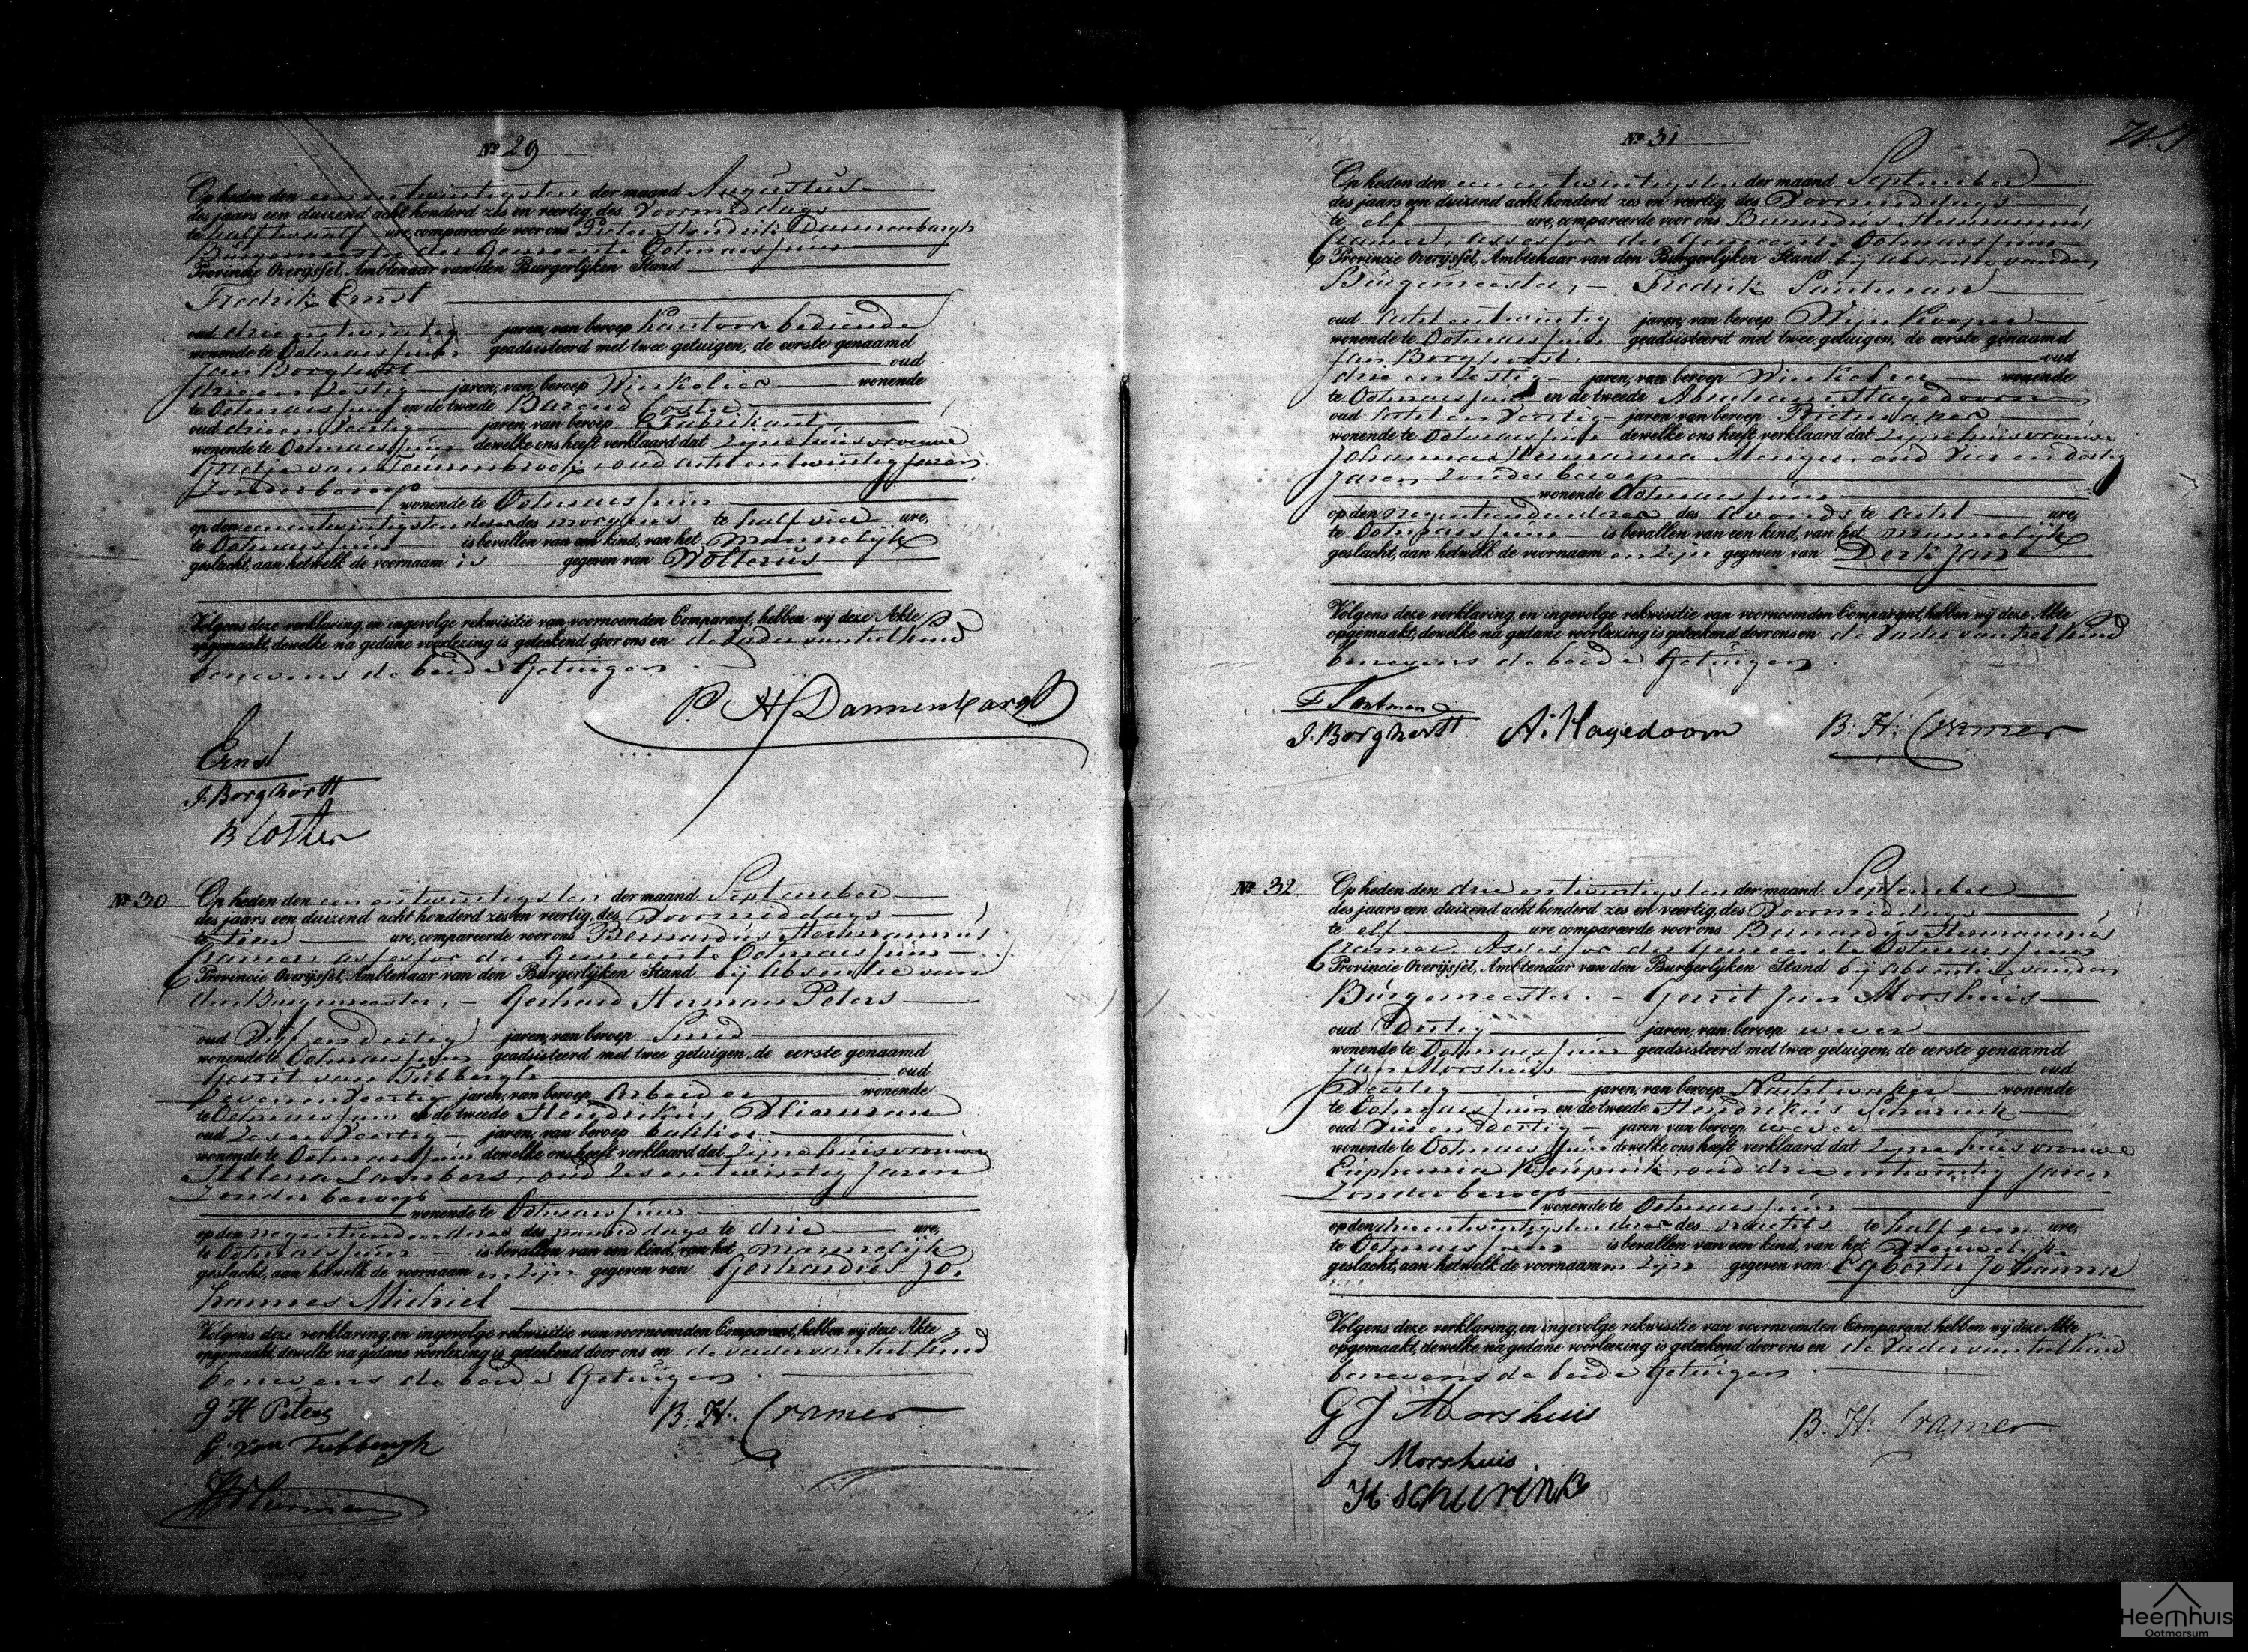 Nº 29
Op heden den een entwintigsten der maand Augustus
des jaars een duizend acht honderd zes en veertig, des Voormiddags
te half twaalf ure, compareerde voor ons Pieter Hendrik Dannenbargh
Burgemeester der Gemeente Ootmarssum
Provincie Overijssel, Ambtenaar van den Burgerlijken Stand
Fredrik Ernst
oud drie entwintig jaren, van beroep Kantoor bediende
wonende te Ootmarssum geadsisteerd met twee getuigen, de eerste genaamd
Jan Borghorst oud
drie en zestig jaren, van beroep Winkelier wonende
te Ootmarssum en de tweede Barend Coster
oud drie en veertig jaren, van beroep Fabrikant
wonende te Ootmarssum dewelke ons heeft verklaard dat zijne huisvrouwe
van oud acht entwintig Jaren
zonder beroep
wonende te Ootmarssum
op den een entwintigsten dezer des morgens te half vier ure,
te Ootmarssum is bevallen van een kind, van het Mannelijk
geslacht, aan hetwelk de voornaam is gegeven van Wolterus
Volgens deze verklaring, en ingevolge rekwisitie van voornoemden Comparant, hebben wij deze Akte
opgemaakt, dewelke na gedane voorlezing is geteekend door ons en de Vader van het kind
benevens de beide Getuigen
P. H Dannenbargh
Ernst
J. Borghorst
B Coster
Nº 30 Op heden den een entwintigsten der maand September
des jaars een duizend acht honderd zes en veertig, des Voormiddags
te tien ure, compareerde voor ons Bernardus Hermannus
Cramer, assessor der Gemeente Ootmarssum
Provincie Overijssel, Ambtenaar van den Burgerlijken Stand bij absentie van
den Burgemeester, – Gerhard Herman Peters
oud Vijf en dertig jaren, van beroep Smid
wonende te Ootmarssum geadsisteerd met twee getuigen, de eerste genaamd
Gerrit van Tubbergh oud
zeven en veertig jaren, van beroep Arbeider wonende
te Ootmarssum en de tweede Hendrikus
oud zes en veertig jaren, van beroep
wonende te Ootmarssum dewelke ons heeft verklaard dat zijne huisvrouwe
Helena Lambers, oud zes entwintig Jaren
zonder beroep
wonende te Ootmarssum
op den negentienden dezer des namiddags te drie ure,
te Ootmarssum is bevallen van een kind, van het mannelijk
geslacht, aan hetwelk de voornaam en zijn gegeven van Gerhardus Jo-
hannes Michiel
Volgens deze verklaring, en ingevolge rekwisitie van voornoemden Comparant, hebben wij deze Akte
opgemaakt, dewelke na gedane voorlezing is geteekend door ons en de vader van het kind
benevens de beide Getuigen
G H Peters
B. H. Cramer
G. van Tubbergh
Nº 31
Op heden den een entwintigsten der maand September
des jaars een duizend acht honderd zes en veertig, des Voormiddags
te elf ure, compareerde voor ons Bernardus Hermannus
Cramer, assessor der Gemeente Ootmarssum
Provincie Overijssel, Ambtenaar van den Burgerlijken Stand bij absentie van den
Burgemeester, – Fredrik Santman
oud acht entwintig jaren, van beroep Wijn Kooper
wonende te Ootmarssum geadsisteerd met twee getuigen, de eerste genaamd
Jan Borghorst oud
drie en zestig jaren, van beroep Winkelier wonende
te Ootmarssum en de tweede Abraham Hagedoorn
oud acht en veertig jaren, van beroep Rietmaker
wonende te Ootmarssum dewelke ons heeft verklaard dat zijne huisvrouwe
Johanna Hermanna Menger, oud vier en dertig
Jaren zonder beroep
wonende Ootmarssum
op den negentienden dezer des Avonds te acht ure,
te Ootmarssum is bevallen van een kind, van het mannelijk
geslacht, aan hetwelk de voornaam en zijn gegeven van Derk Jan
Volgens deze verklaring, en ingevolge rekwisitie van voornoemden Comparant, hebben wij deze Akte
opgemaakt, dewelke na gedane voorlezing is geteekend door ons en de Vader van het kind
benevens de beide Getuigen
F Santman
J. Borghorst A: Hagedoorn B: H: Cramer
Nº 32 Op heden den drie entwintigsten der maand September
des jaars een duizend acht honderd zes en veertig, des Voormiddags
te elf ure compareerde voor ons Bernardus Hermannus
Cramer, Assessor der Gemeente Ootmarssum
Provincie Overijssel, Ambtenaar van den Burgerlijken Stand bij absentie van den
Burgemeester. – Gerrit Jan Morshuis
oud Dertig jaren, van beroep wever
wonende te Ootmarssum geadsisteerd met twee getuigen, de eerste genaamd
Jan Morshuis oud
jaren, van beroep Nachtwaker wonende
te Ootmarssum en de tweede Hendrikus Schurink
oud Vier en Dertig jaren van beroep wever
wonende te Ootmarssum dewelke ons heeft verklaard dat zijne huisvrouwe
Euphemia oud drie entwintig Jaren
zonder beroep
wonende te Ootmarssum
op den drie entwintigsten dezer des nachts te half een ure,
te Ootmarssum is bevallen van een kind, van het Vrouwelijk
geslacht, aan hetwelk de voornaam en zijn gegeven van Egberta Johanna
Volgens deze verklaring, en ingevolge rekwisitie van voornoemden Comparant hebben wij deze Akte
opgemaakt, dewelke na gedane voorlezing is geteekend door ons en de Vader van het kind
benevens de beide Getuigen
G J Morshuis
B. H: Cramer
J Morshuis
H. schurink
Heemhuis
Ootmarsum